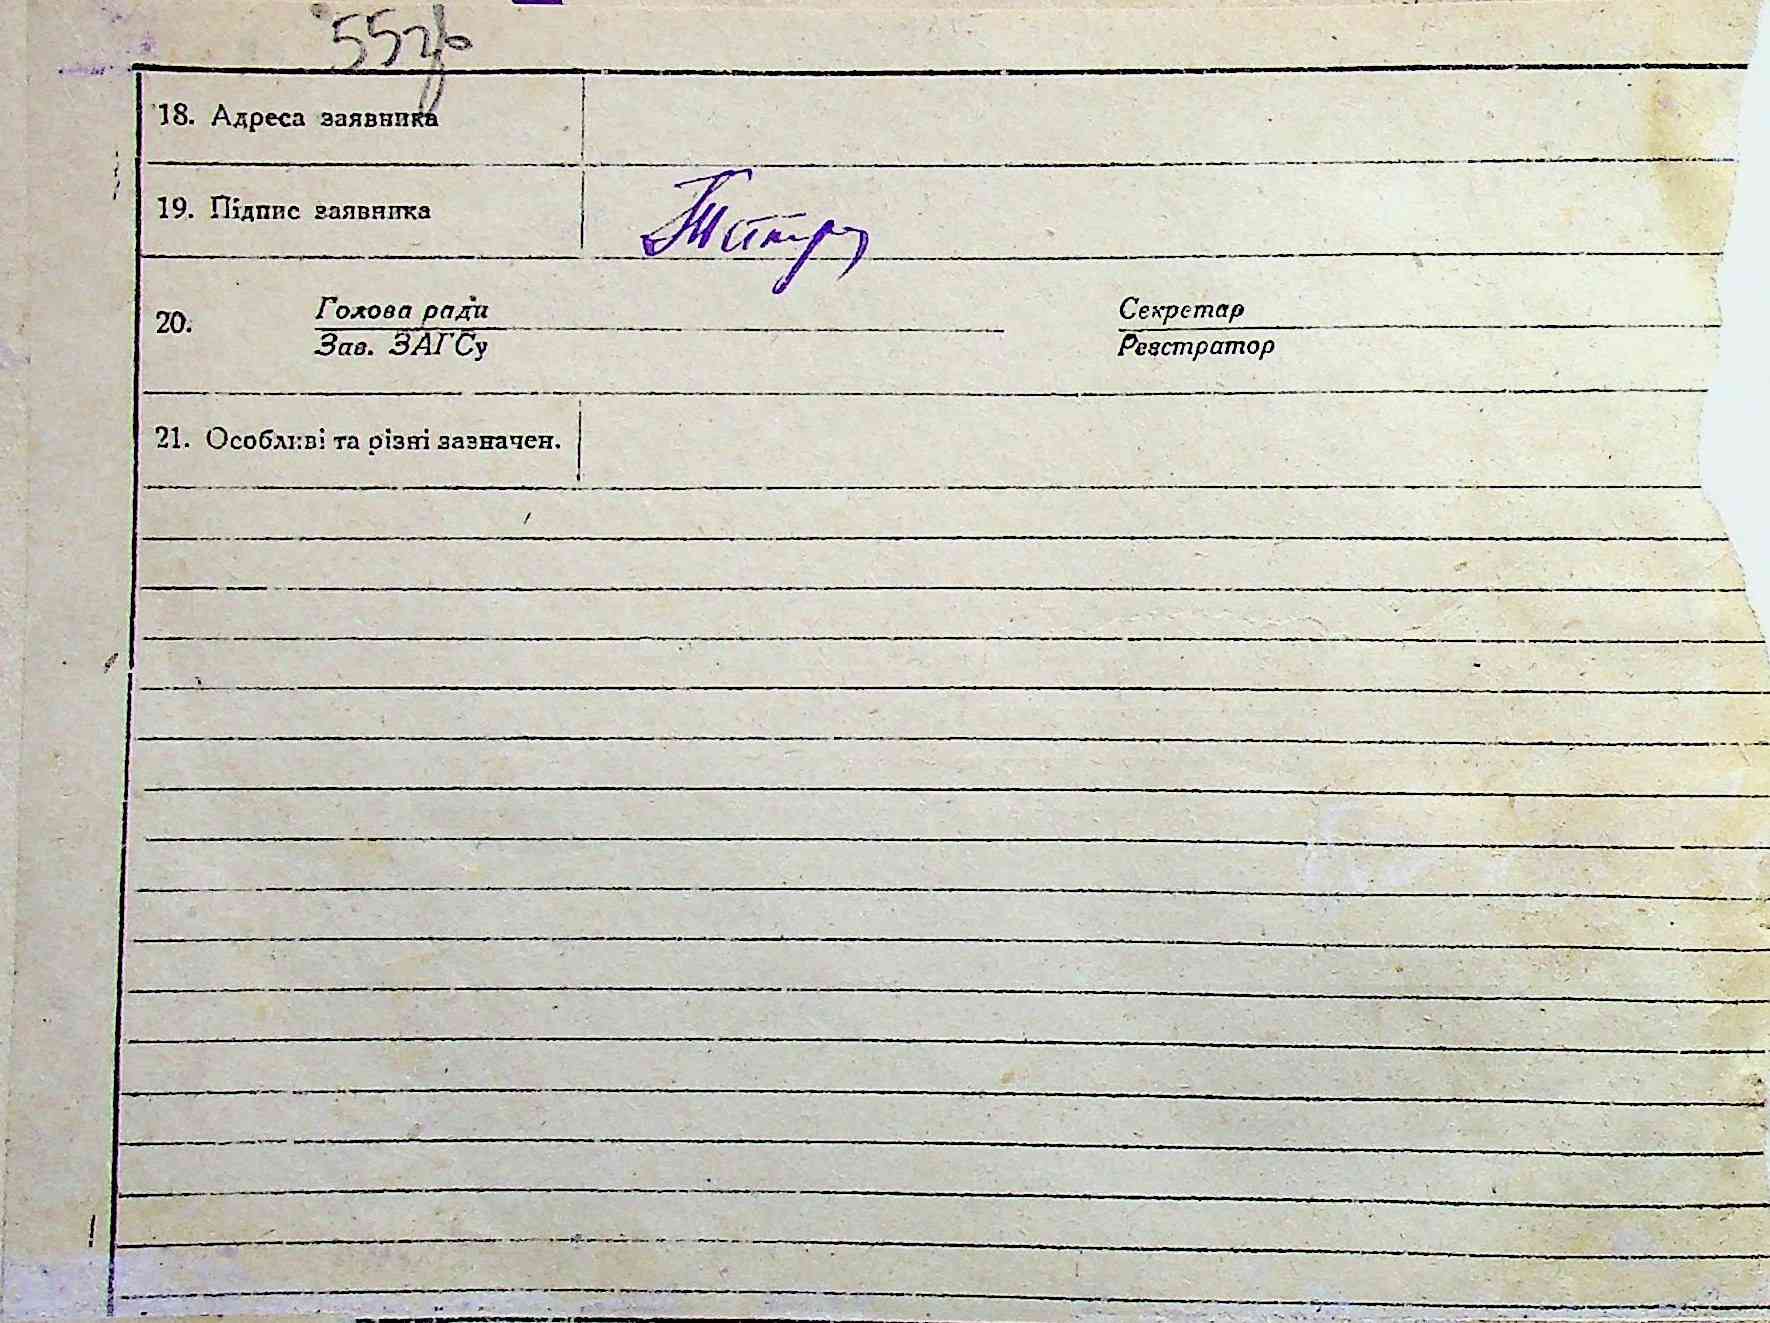 55зв
18. Адреса заявника
19. Підпис заявника
20. Голова ради Секретар
Зав. ЗАГСу Реєстратор
21. Особливі та різні зазначен.